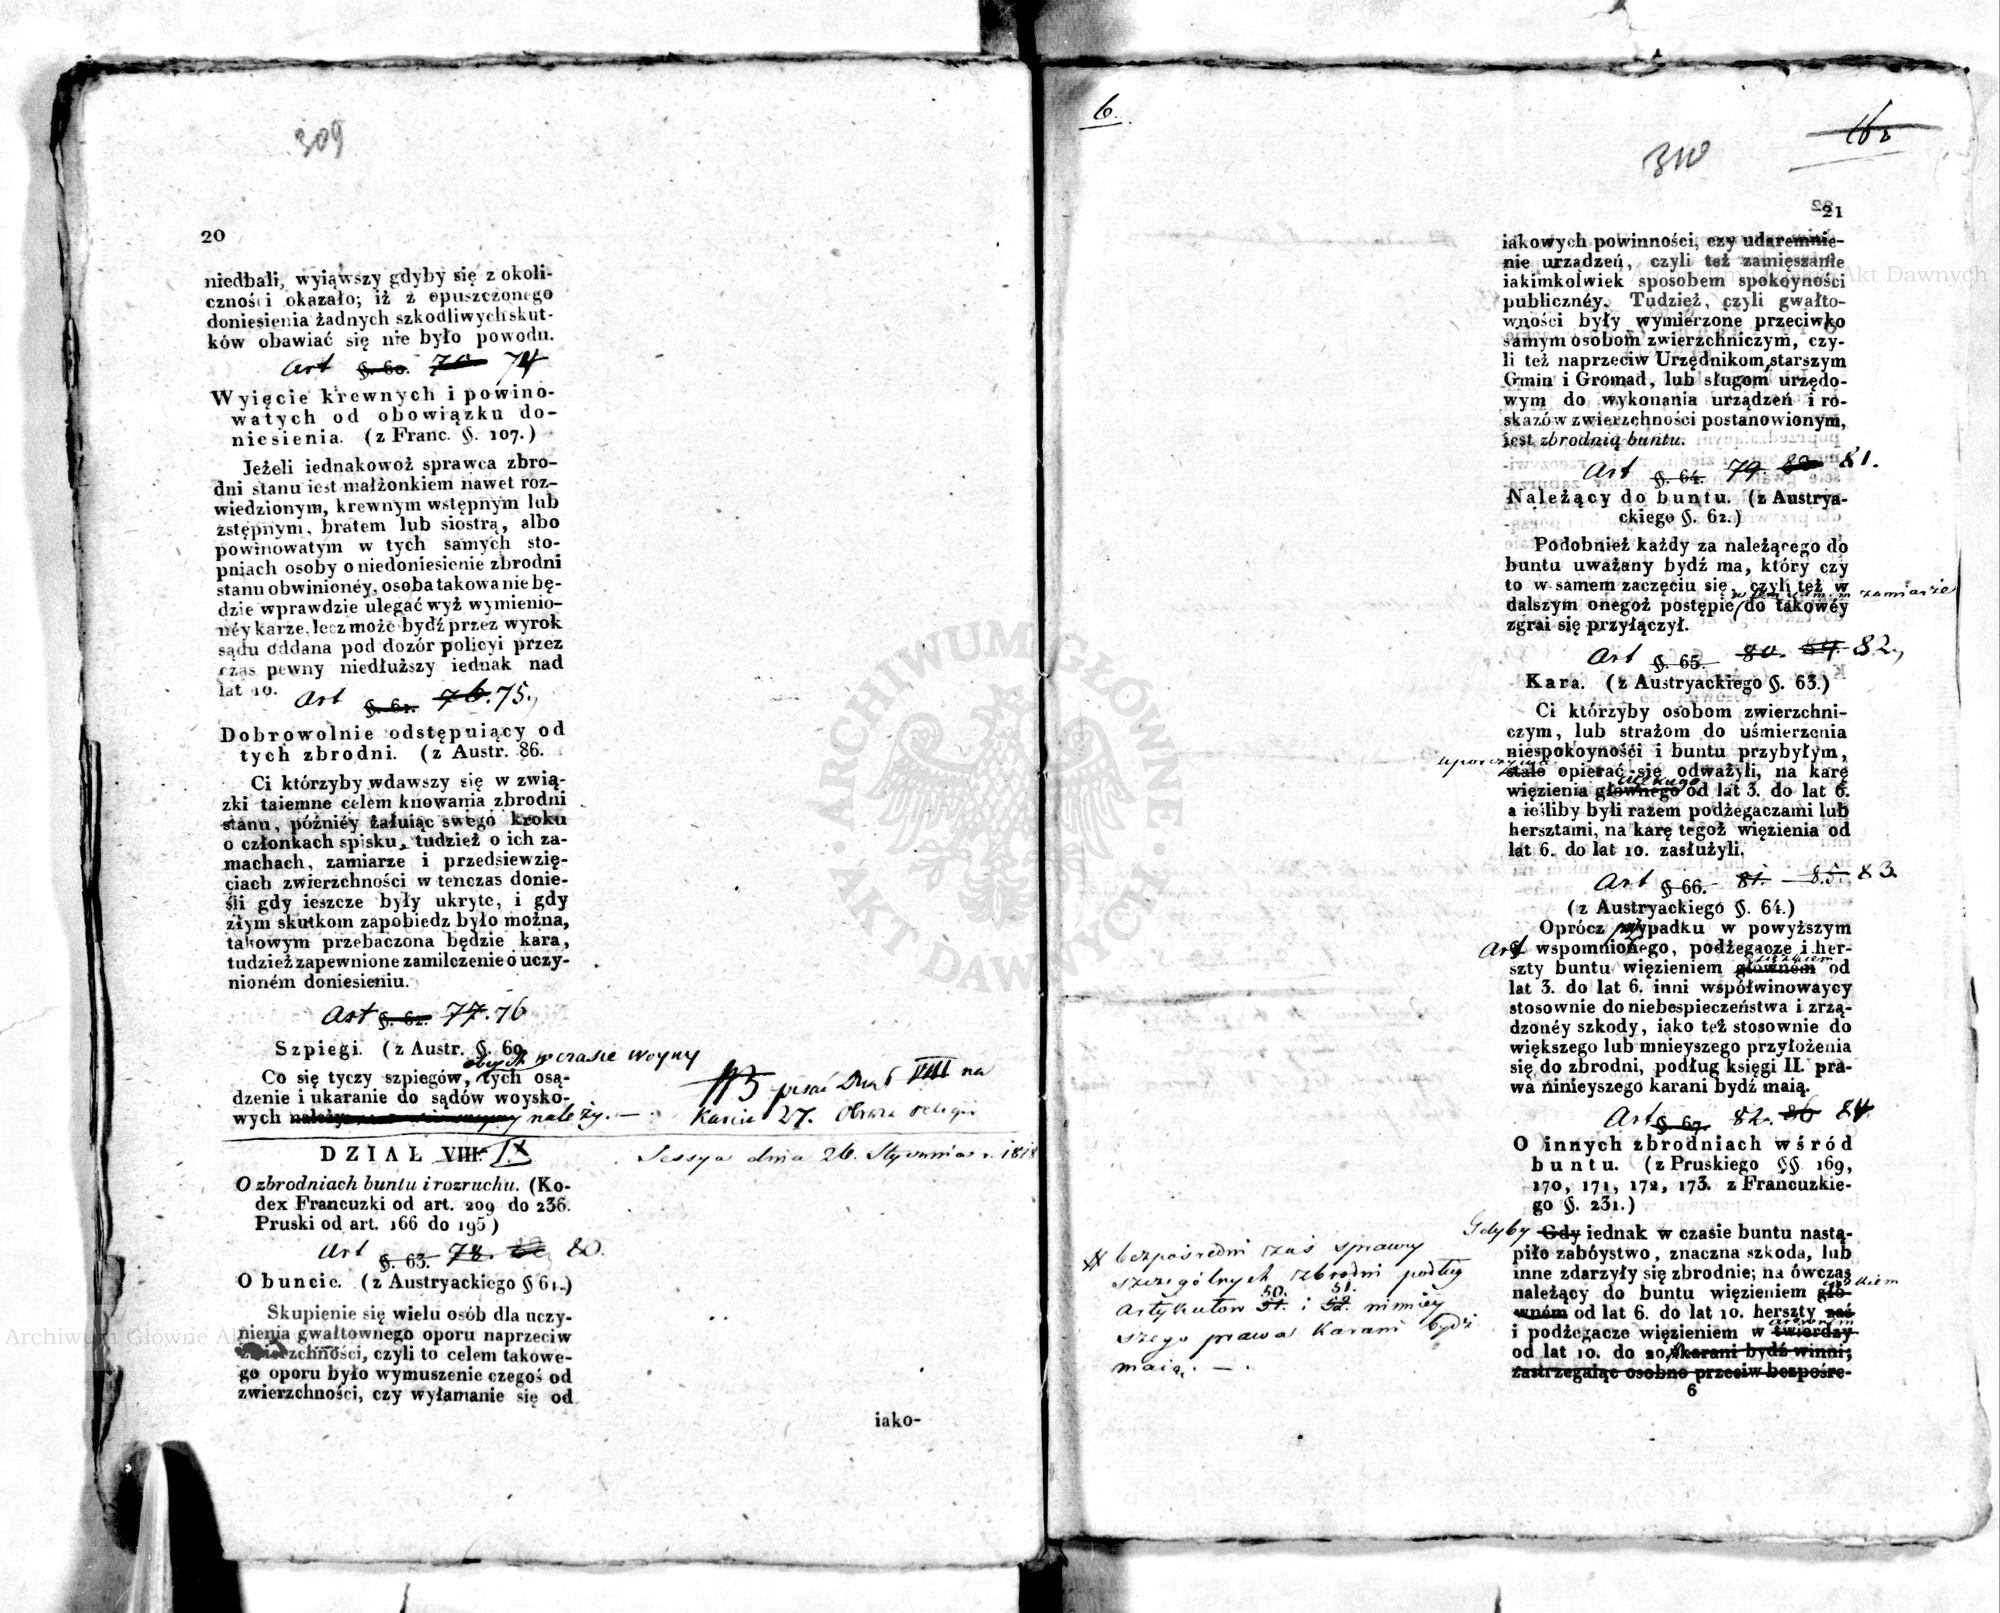 309
20
niedbali, wyiąwszy gdyby się z okoli-
czności okazało; iż z opuszczonego
doniesienia żadnych szkodliwych skut-
ków obawiać się nie było powodu.
Art §. 60. 74
Wyięcie krewnych i powino-
watych od obowiązku do-
niesienia. (z Franc. §. 107.)
Jeżeli iednakowoż sprawca zbro-
dni stanu iest małżonkiem nawet roz-
wiedzionym, krewnym wstępnym lub
zstępnym, bratem lub siostrą, albo
powinowatym w tych samych sto-
pniach osoby o niedoniesienie zbrodni
stanu obwinionéy, osoba takowa nie bę-
dzie wprawdzie ulegać wyż wymienio-
néy karze, lecz może bydź przez wyrok
sądu oddana pod dozór policyi przez
czas pewny niedłuższy iednak nad
lat 10.
Art §. 61. 76. 75.
Dobrowolnie odstępuiący od
tych zbrodni. (z Austr. 86.
Ci którzyby wdawszy się w zwią-
zki taiemne celem knowania zbrodni
stanu, późniéy żałuiąc swego kroku
o członkach spisku, tudzież o ich za-
machach, zamiarze i przedsiewzię-
ciach zwierzchności w tenczas donie-
śli gdy ieszcze były ukryte, i gdy
złym skutkom zapobiedz było można,
takowym przebaczona będzie kara,
tudzież zapewnione zamilczenie o uczy-
nioném doniesieniu.
Art §. 62. 77. 76
Szpiegi. (z Austr. §. 60.
w czasie woyny
Co się tyczy szpiegów, tych osą-
dzenie i ukaranie do sądów woysko-
wych należy należy. —
VIII na
karcie 27. Obraza religii
DZIAŁ VIII. IX
Sessya dnia 26. Stycznia r. 1818
O zbrodniach buntu i rozruchu. (Ko-
dex Francuzki od art. 209 do 236.
Pruski od art. 166 do 195)
Art §. 63. 78. 80.
O buncie. (z Austryackiego § 61.)
Skupienie się wielu osób dla uczy-
nienia gwałtownego oporu naprzeciw
zwierzchności, czyli to celem takowe-
go oporu było wymuszenie czegoś od
zwierzchności, czy wyłamanie się od
iako-
6.
310
21
iakowych powinności, czy udaremnie-
nie urządzeń, czyli też zamięszanie
iakimkolwiek sposobem spokoyności
publicznéy. Tudzież, czyli gwałto-
wności były wymierzone przeciwko
samym osobom zwierzchniczym, czy-
li też naprzeciw Urzędnikom, starszym
Gmin i Gromad, lub sługom urzędo-
wym do wykonania urządzeń i ro-
skazów zwierzchności postanowionym,
iest zbrodnią buntu.
Art §. 64. 79. 81.
Należący do buntu. (z Austrya-
ckiego §. 62.)
Podobnież każdy za należącego do
buntu uważany bydź ma, który czy
to w samem zaczęciu się, czyli też w
zamiarze
dalszym onegoż postępie do takowéy
zgrai się przyłączył.
Art §. 65. 80. 84. 82.
Kara. (z Austryackiego §. 63.)
Ci którzyby osobom zwierzchni-
czym, lub strażom do uśmierzenia
niespokoyności i buntu przybyłym,
uporczywie
stale opierać się odważyli, na karę
więzienia głownego od lat 3. do lat 6.
a ieśliby byli razem podżegaczami lub
hersztami, na karę tegoż więzienia od
lat 6. do lat 10. zasłużyli.
Art § 66. 81. 85. 83.
(z Austryackiego §. 64.)
Oprócz wypadku w powyższym
Art § wspomnionego, podżegacze i her-
ciężkiem
szty buntu więzieniem głównem od
lat 3. do lat 6. inni współwinowaycy
stosownie do niebespieczeństwa i zrzą-
dzonéy szkody, iako też stosownie do
większego lub mnieyszego przyłożenia
się do zbrodni, podług księgi II. pra-
wa ninieyszego karani bydź maią.
Art §. 67. 82. 86 84
O innych zbrodniach wśród
buntu. (z Pruskiego §§ 169,
170, 171, 172, 173. z Francuzkie-
go §. 231.)
Gdyby Gdy iednak w czasie buntu nastą-
piło zabóystwo, znaczna szkoda, lub
inne zdarzyły się zbrodnie; na ówczas
ciężkiem
należący do buntu więzieniem głó-
wném od lat 6. do lat 10. herszty zaś
warownem
i podżegacze więzieniem w twierdzy
od lat 10. do 20. karani bydź winni;
zastrzegaiąc osobno przeciw bezpośre-
6
# bezpośredni zaś sprawcy
szczególnych zbrodni podług
50. 51.
artykułow 51. i 52. ninniey
szego prawa karani bydź
maią. —.